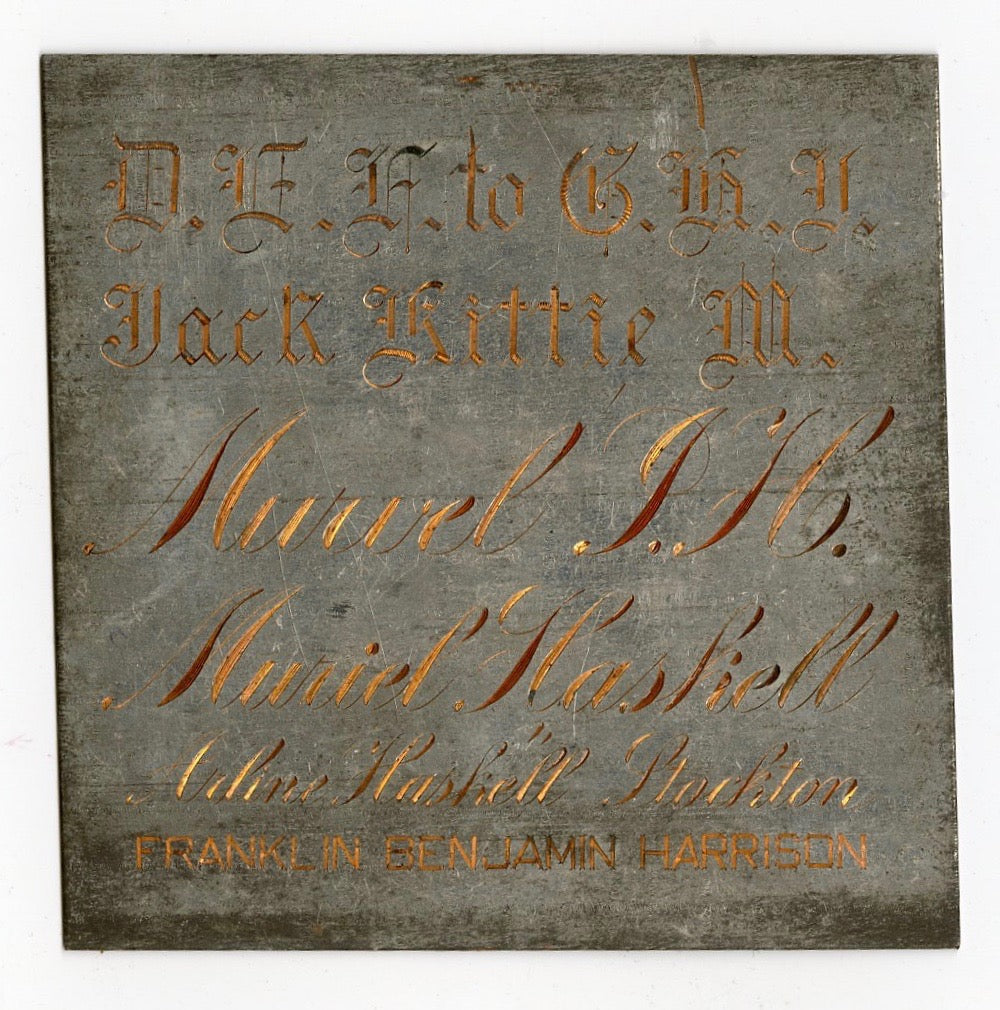 D.E.F. to G.H.I.
Jack Kittie M.
Murvel J. H.
Muriel. Haskell
Arline Haskell Stockton
FRANKLIN BENJAMIN HARRISON